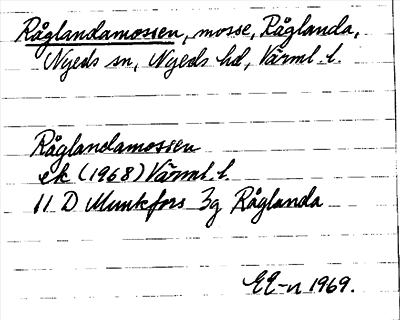 Råglandamossen, mosse, Råglanda,
Nyeds sn, Nyeds hd, Värml. l.
Råglandamossen
ek (1968) Värml. l.
11 D Munkfors 3g Råglanda
EE-n 1969.